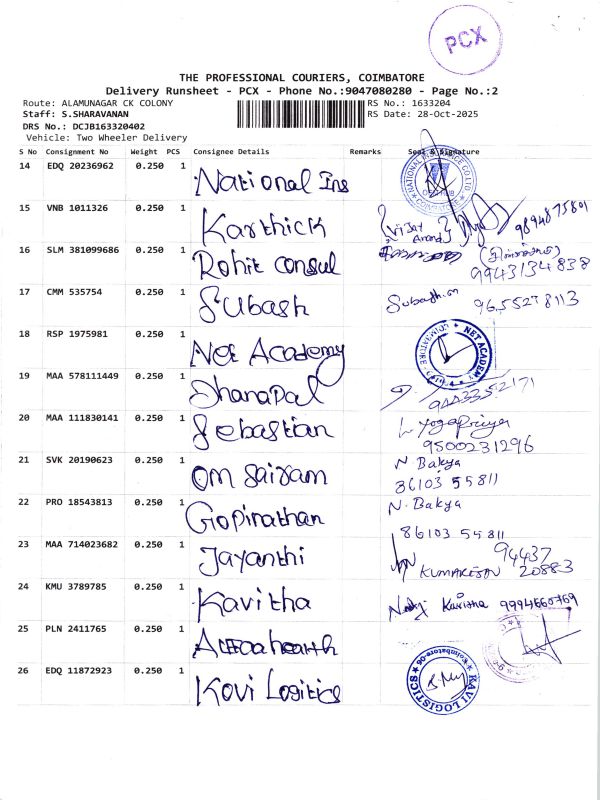 PCX
THE PROFESSIONAL COURIERS, COIMBATORE
Delivery Runsheet - PCX - Phone No.:9047080280 - Page No.:2
Route: ALAMUNAGAR CK COLONY
RS No.: 1633204
Staff: S.SHARAVANAN
RS Date: 28-Oct-2025
DRS No.: DCJB163320402
Vehicle: Two Wheeler Delivery
S No Consignment No Weight PCS Consignee Details Remarks Seal & Signature
14 EDQ 20236962 0.250 1 National Ins
15 VNB 1011326 0.250 1 Karthick {Vijay Anand} 9894875801
16 SLM 381099686 0.250 1 Rohit Consul 9943134838
17 CMM 535754 0.250 1 Subash Subash.m 9655278113
18 RSP 1975981 0.250 1 Net Academy NET ACADEMY COIMBATORE
19 MAA 578111449 0.250 1 Dhanapal 9443352171
20 MAA 111830141 0.250 1 Sebastian L Yogapriya
9500231296
21 SVK 20190623 0.250 1 Om Sairam N Bakya
86103 55811
22 PRO 18543813 0.250 1 Gopinathan N. Bakya
86103 55811
23 MAA 714023682 0.250 1 Jayanthi 94437
KUMARESAN 20883
24 KMU 3789785 0.250 1 Kavitha Kavitha 9994660769
25 PLN 2411765 0.250 1
26 EDQ 11872923 0.250 1 Kovi Logitics KAVI LOGISTICS